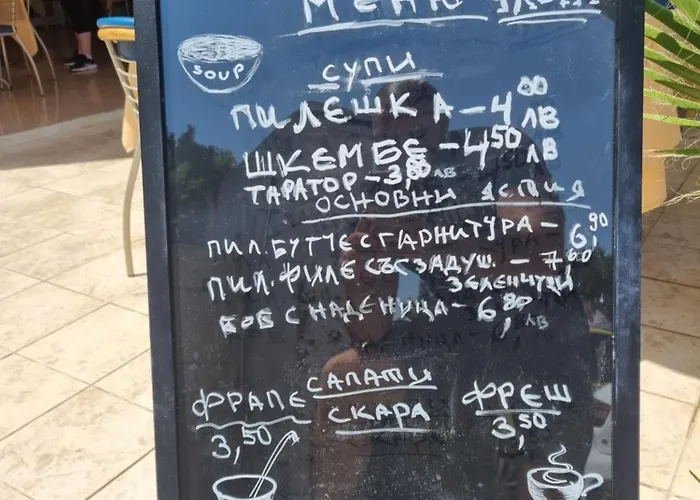 МЕНЮ
SOUP
СУПИ
ПИЛЕШКА - 4 00 ЛВ
ШКЕМБЕ - 4 50 ЛВ
ТАРАТОР - 3,80 ЛВ
ОСНОВНИ ЯСТИЯ
ПИЛ. БУТЧЕ С ГАРНИТУРА - 6,90
ПИЛ. ФИЛЕ СЪС ЗАДУШ. - 7 60
ЗЕЛЕНЧУЦИ
БОБ С НАДЕНИЦА - 6,80 ЛВ
ФРАПЕ САЛАТИ ФРЕШ
3,50 СКАРА 3,50